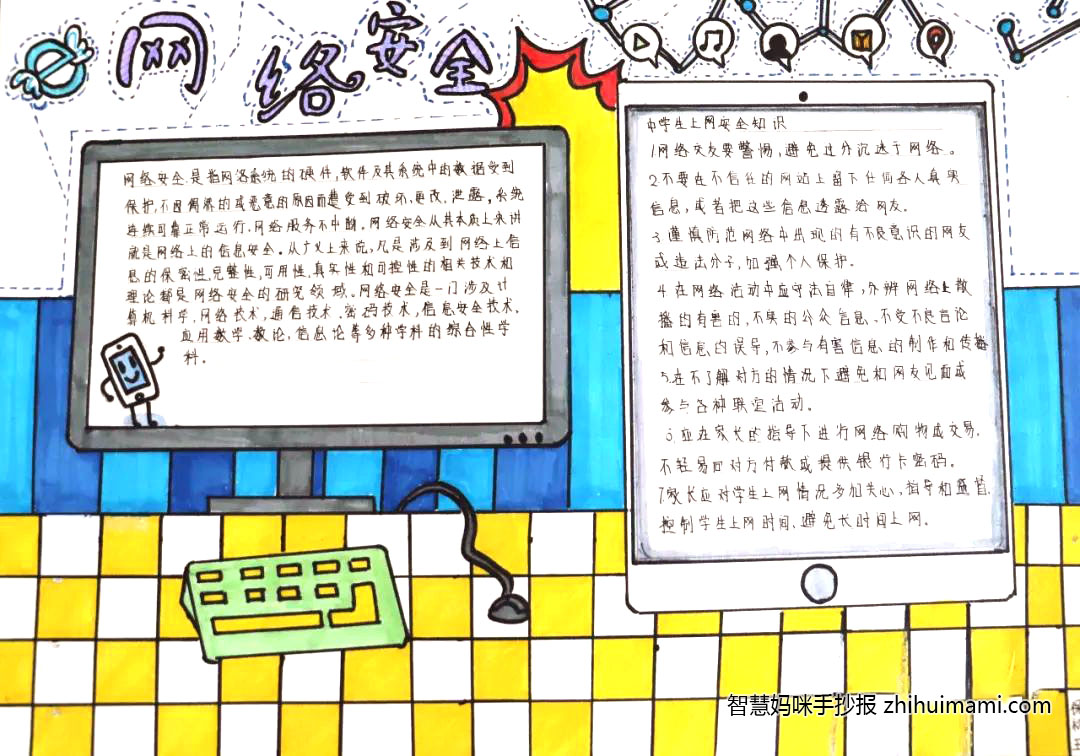 网络安全
网络安全是指网络系统的硬件,软件及其系统中的数据受到
保护,不因偶然的或恶意的原因而遭受到破坏,更改,泄露,系统
连续可靠正常运行,网络服务不中断。网络安全从其本质上来讲
就是网络上的信息安全。从广义上来说,凡是涉及到网络上信
息的保密性,完整性,可用性,真实性和可控性的相关技术和
理论都是网络安全的研究领域。网络安全是一门涉及计
算机科学,网络技术,通信技术,密码技术,信息安全技术,
应用数学,数论,信息论等多种学科的综合性学
科。
中学生上网安全知识
1网络交友要警惕,避免过分沉迷于网络。
2.不要在不信任的网站上留下任何个人真实
信息,或者把这些信息透露给网友。
3.谨慎防范网络中出现的有不良意识的网友
或违法分子,加强个人保护。
4.在网络活动中应守法自律,分辨网络上散
播的有害的,不实的公众信息、不受不良言论
和信息的误导,不参与有害信息的制作和传播
5.在不了解对方的情况下避免和网友见面或
参与各种联谊活动。
6.应在家长的指导下进行网络购物或交易,
不轻易向对方付款或提供银行卡密码。
7家长应对学生上网情况多加关心,指导和监督,
控制学生上网时间、避免长时间上网。
智慧妈咪手抄报 zhihuimami.com